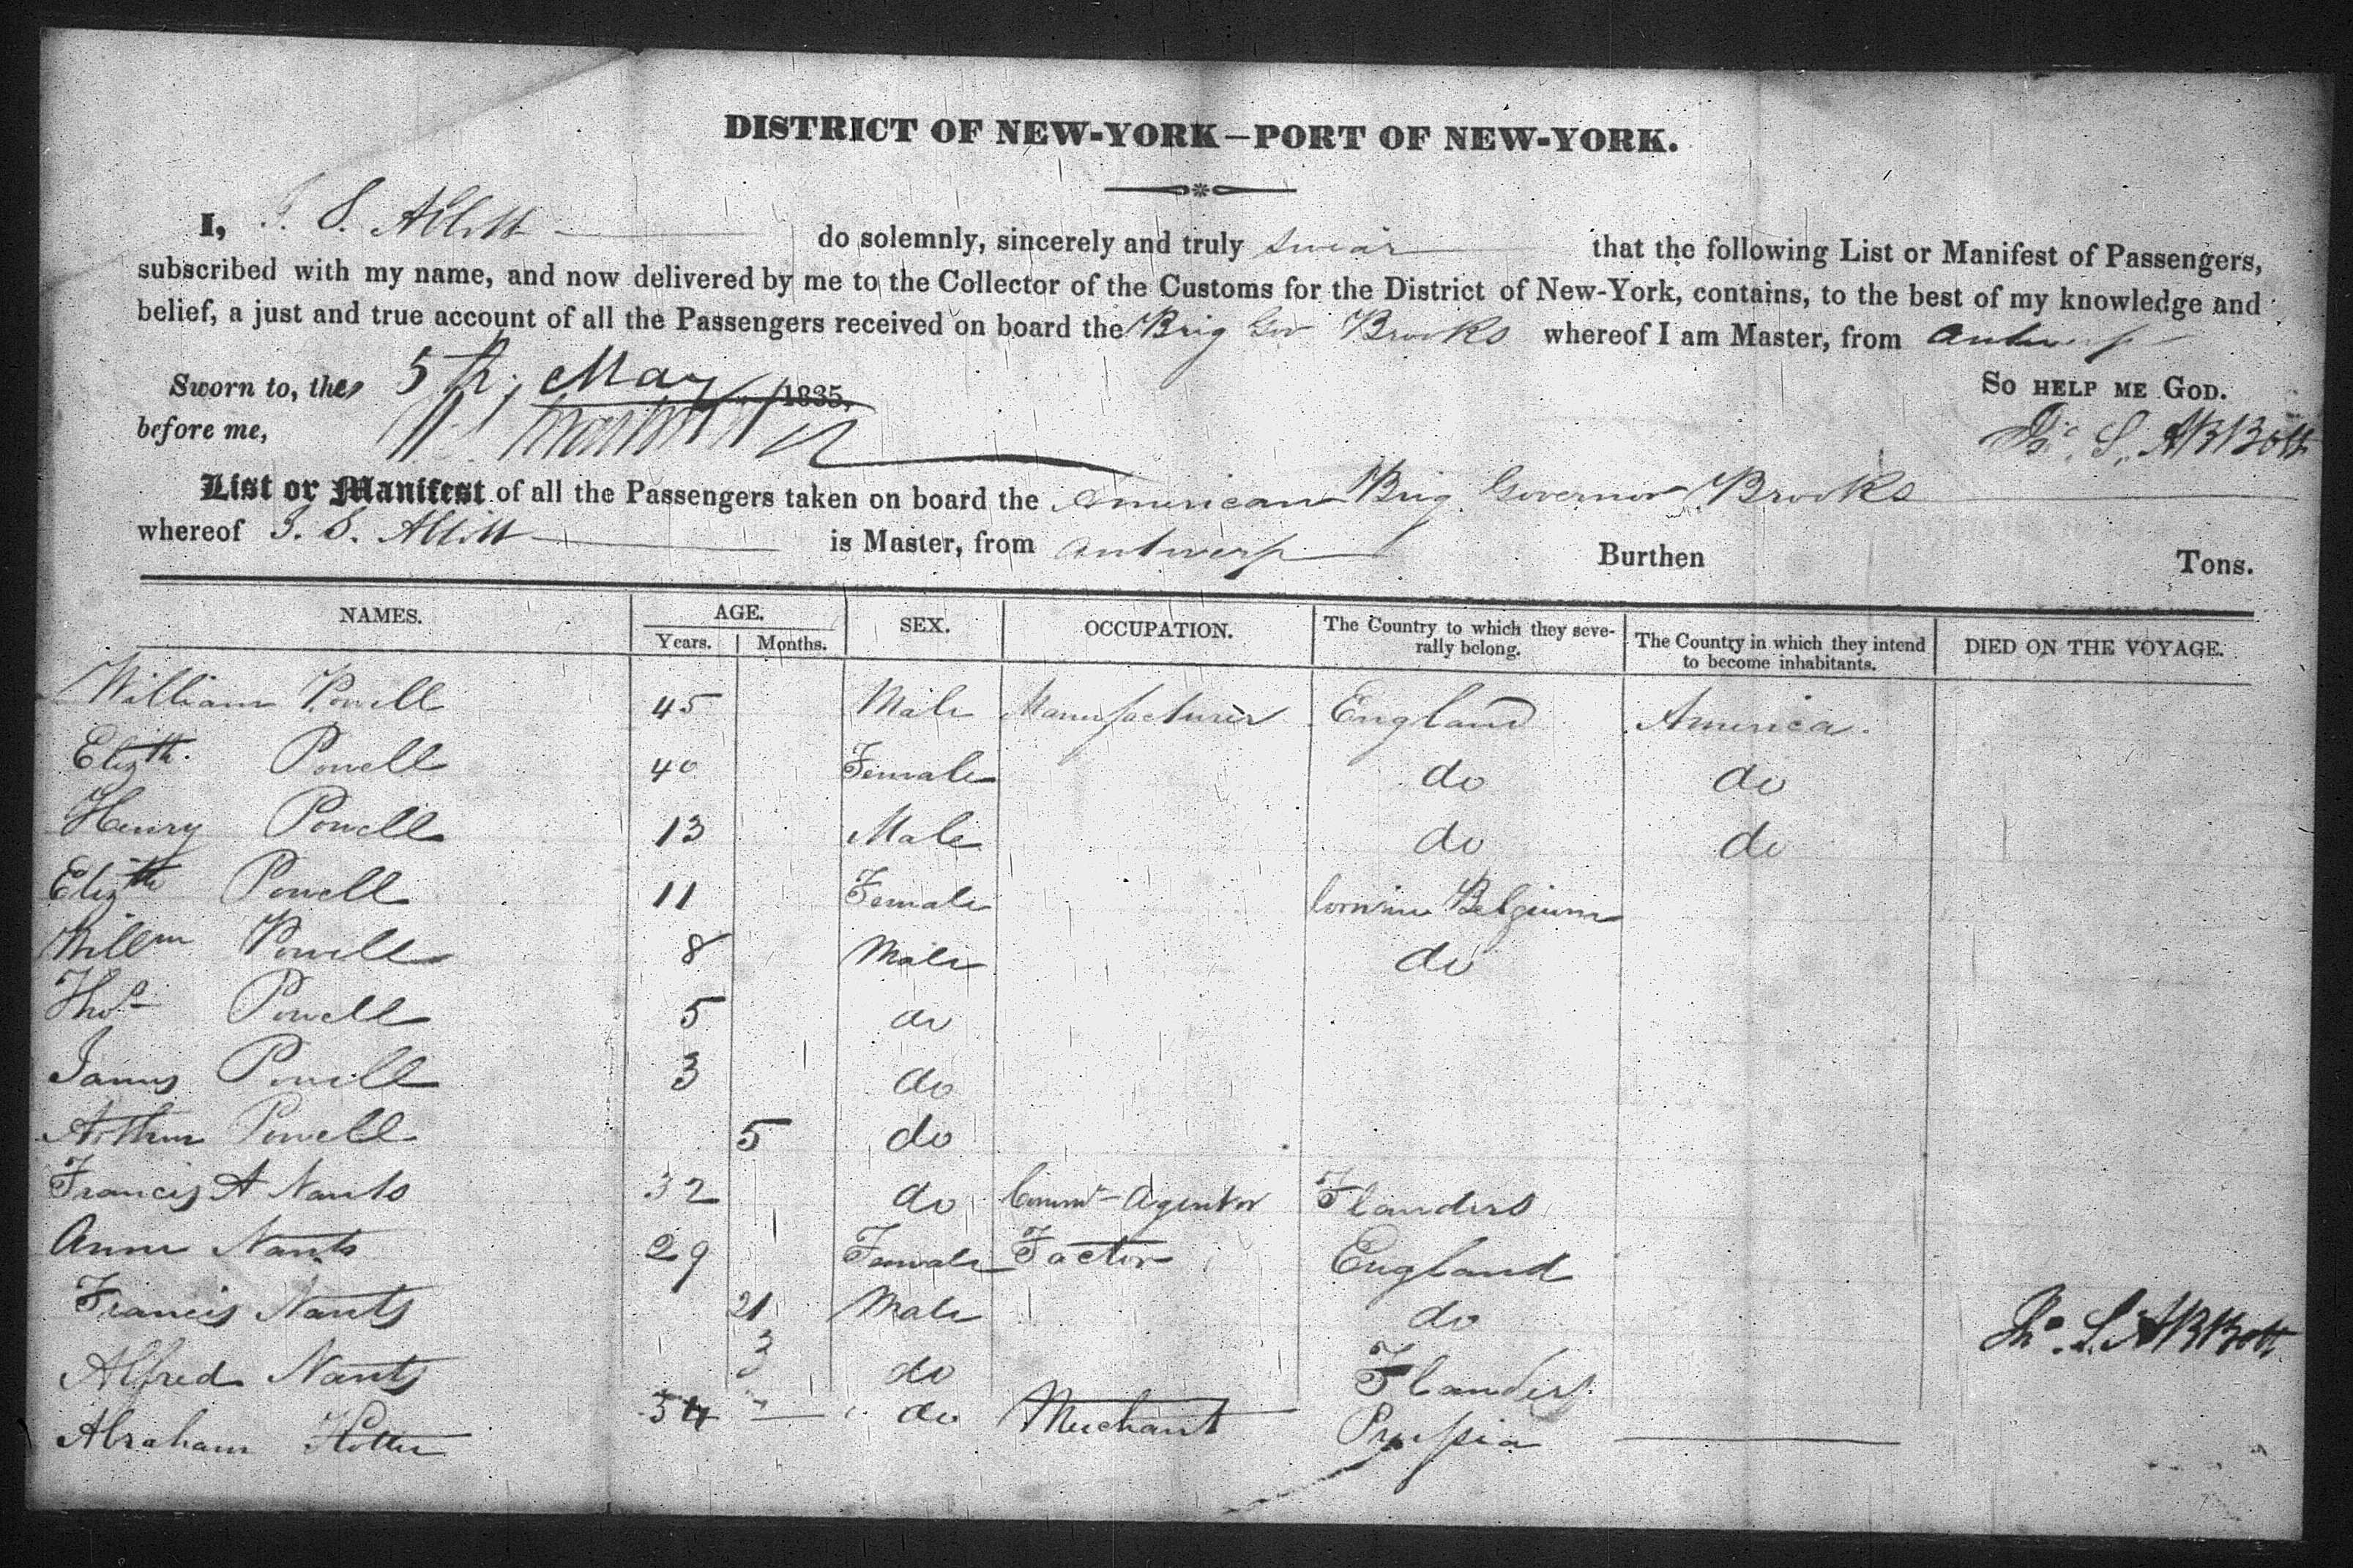 DISTRICT OF NEW-YORK—PORT OF NEW-YORK.
I, T. S. Abbott do solemnly, sincerely and truly swear that the following List or Manifest of Passengers,
subscribed with my name, and now delivered by me to the Collector of the Customs for the District of New-York, contains, to the best of my knowledge and
belief, a just and true account of all the Passengers received on board the Brig Gov Brooks whereof I am Master, from Antwerp
Sworn to, the 5th, May 1835, So help me God.
before me, Thos. S. Abbott
List or Manifest of all the Passengers taken on board the American Brig Governor Brooks
whereof T. S. Abbott is Master, from Antwerp Burthen Tons.
NAMES. AGE. Years. Months. SEX. OCCUPATION. The Country to which they severally belong. The Country in which they intend to become inhabitants. DIED ON THE VOYAGE.
William Powell 45 Male Manufacturer England America.
Elizth. Powell 40 Female do do
Henry Powell 13 Male do do
Elizth Powell 11 Female born in Belgium
Willm Powell 8 Male do
Thos Powell 5 do
James Powell 3 do
Arthur Powell 5 do
Francis A Nants 32 do Agent or Flanders
Anne Nants 29 Female Factor England
Francis Nants 21 Male do
Alfred Nants 3 do Flanders
Abraham 34 do Merchant Prussia
Thos. S. Abbott